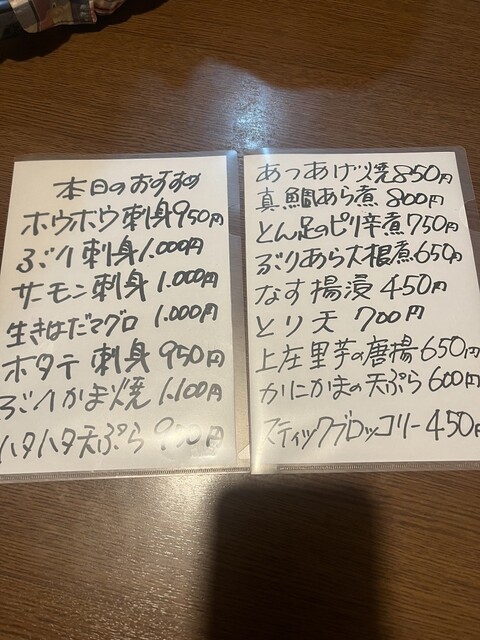 本日のおすすめ
ホウホウ刺身950円
ぶり刺身1.000円
サーモン刺身1.000円
生きはだマグロ1.000円
ホタテ刺身950円
ぶりかま焼1.100円
ハタハタ天ぷら 円
あつあげ焼850円
真鯛あら煮800円
とん足のピリ辛煮750円
ぶりあら大根煮650円
なす揚浸450円
とり天700円
上庄里芋の唐揚650円
かにかまの天ぷら600円
スティックブロッコリー450円